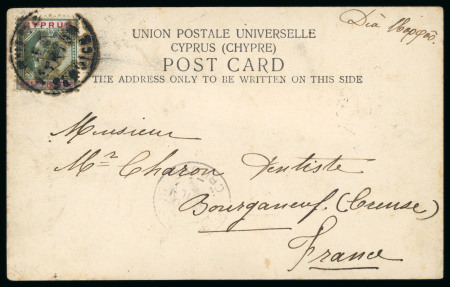 CYPRUS
Διὰ
UNION POSTALE UNIVERSELLE
CYPRUS (CHYPRE)
POST CARD
THE ADDRESS ONLY TO BE WRITTEN ON THIS SIDE
Monsieur
Mr Charon Dentiste
Bourganeuf (Creuse)
France